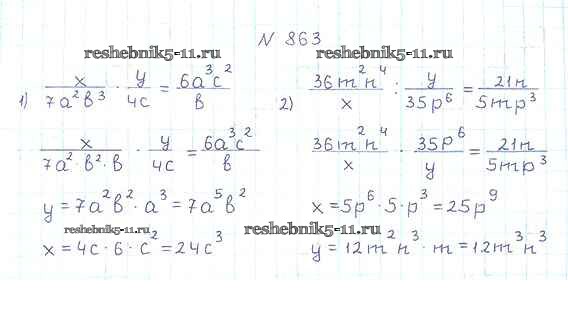 N 863
reshebnik5-11.ru reshebnik5-11.ru
1) x/7a²b³ · y/4c = 6a³c²/b
2) 36m²n⁴/x : y/35p⁶ = 21n/5mp³
x/7a²·b²·b · y/4c = 6a³c²/b
36m²n⁴/x · 35p⁶/y = 21n/5mp³
y = 7a²b² · a³ = 7a⁵b²
x = 5p⁶ · 5 · p³ = 25p⁹
reshebnik5-11.ru reshebnik5-11.ru
x = 4c · 6 · c² = 24c³
y = 12m²n³ · m = 12m³n³